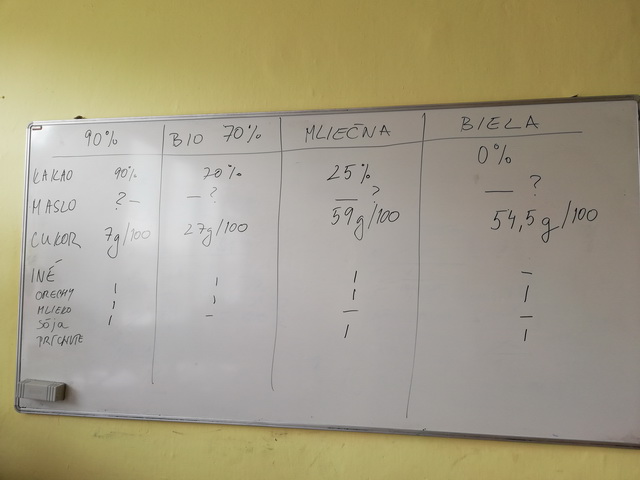 90% BIO 70% MLIEČNA BIELA
KAKAO 90% 70% 25% 0%
MASLO ? — — ? — ? — ?
CUKOR 7g/100 27g/100 59g/100 54,5g/100
INÉ
ORECHY | | | —
MLIEKO | | | |
SÓJA | — — —
| |